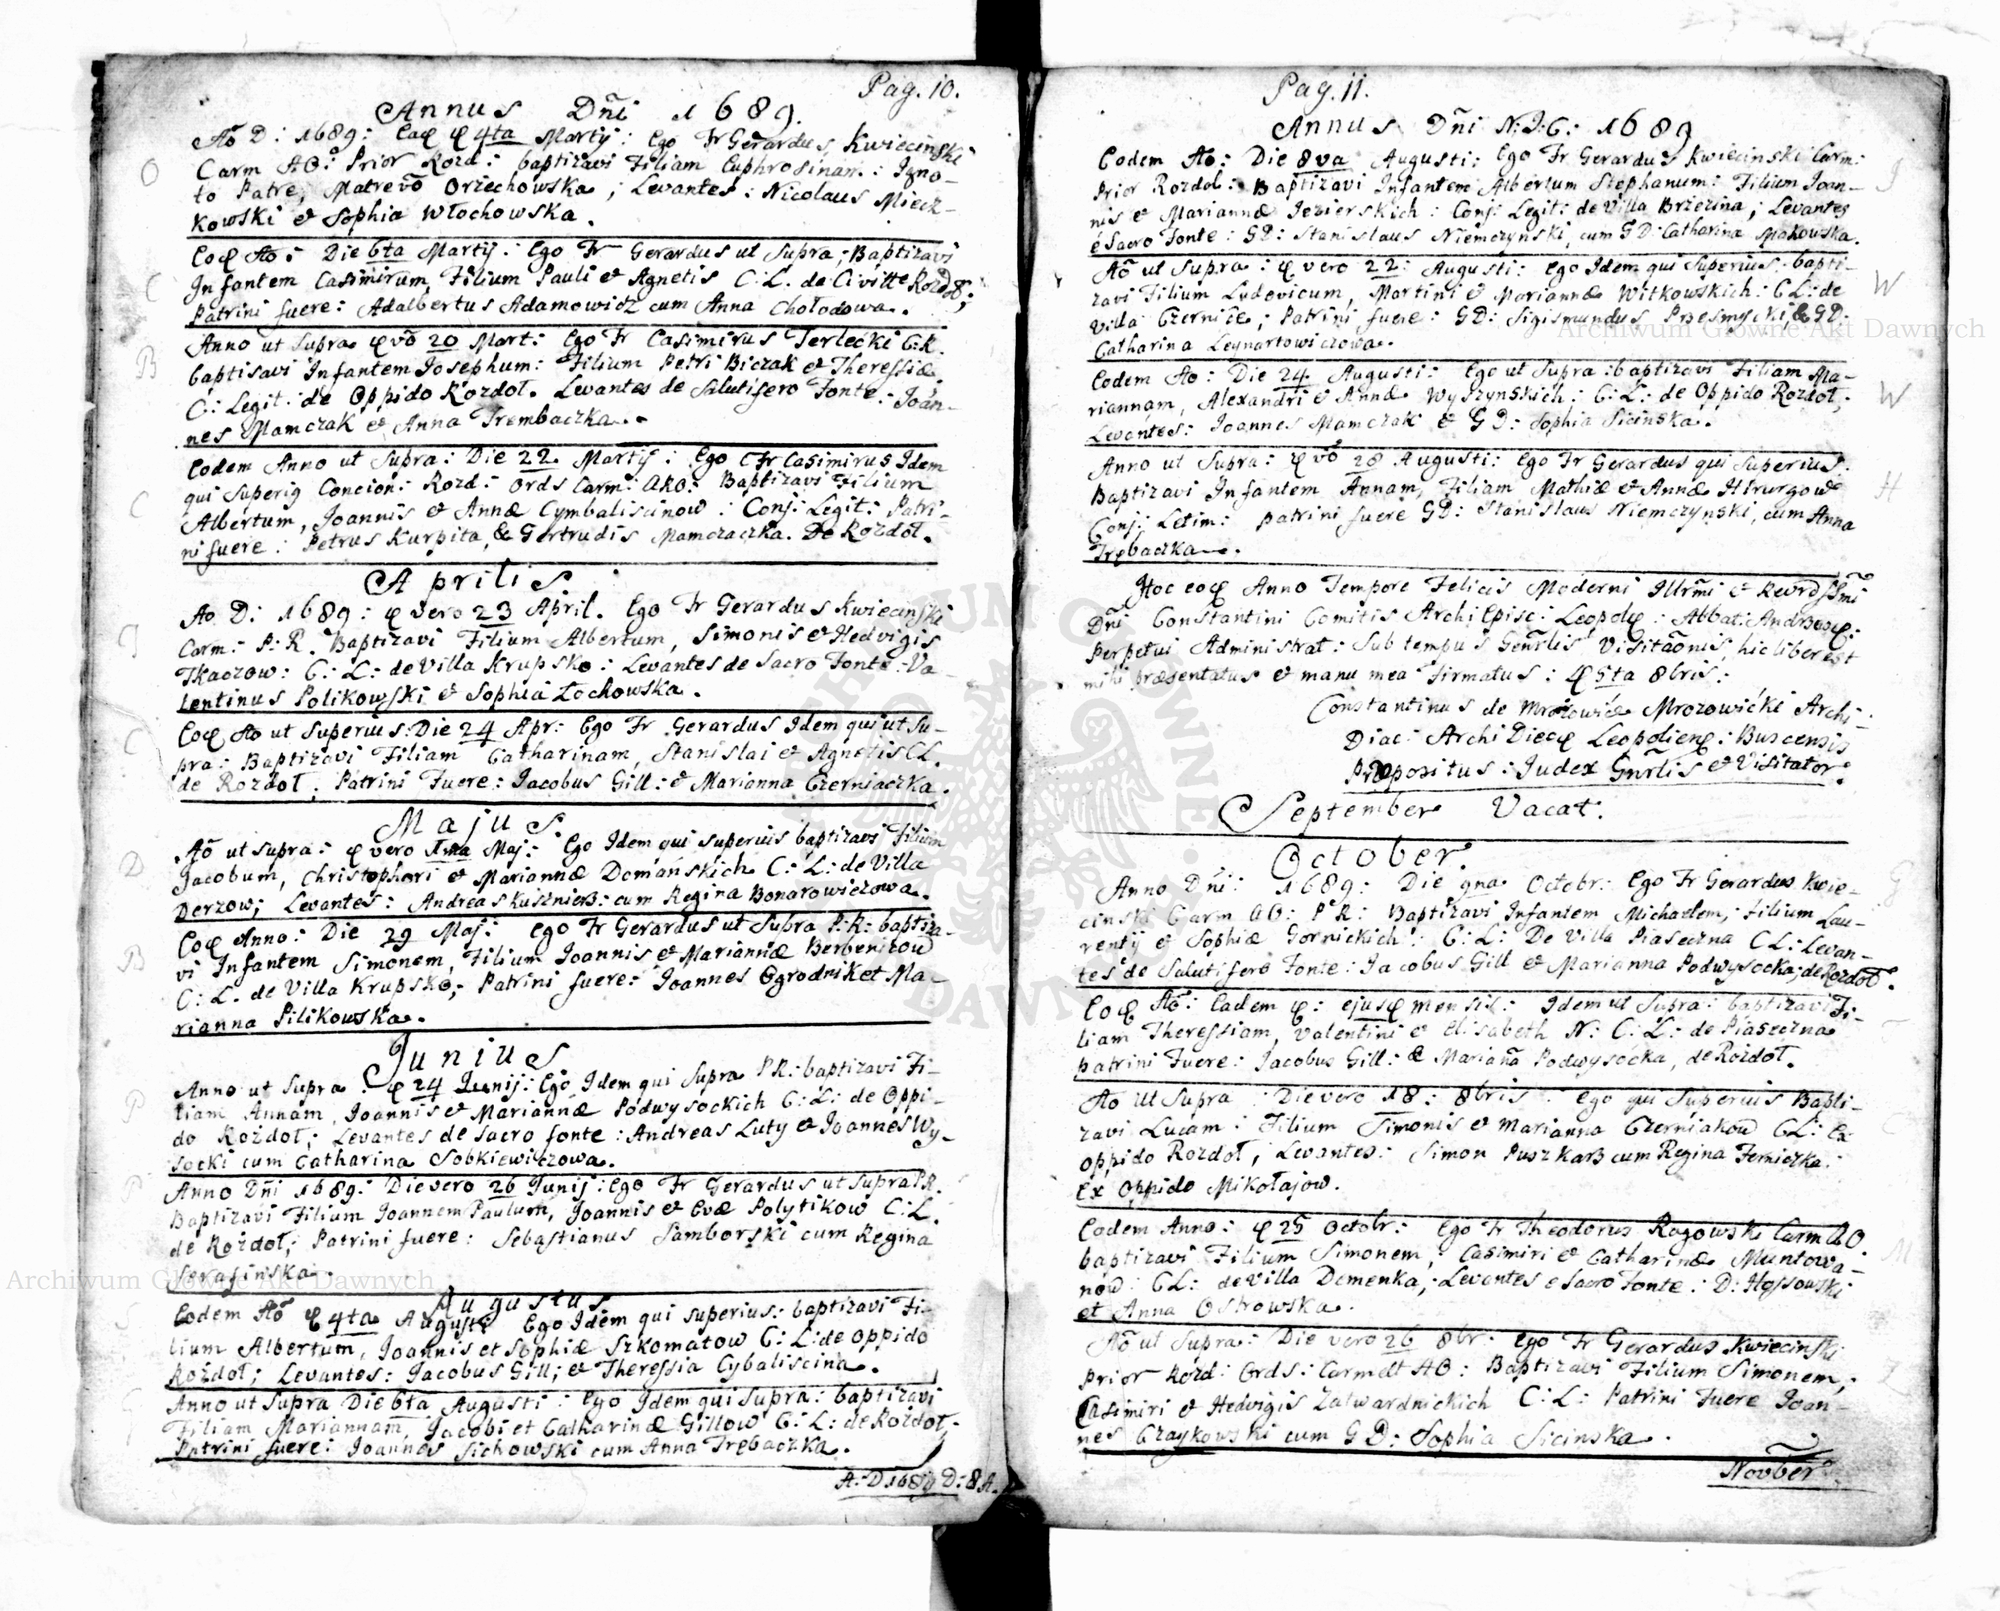 Pag. 10.
Annus Dñi 1689.
O
Ao D: 1689: Eaq 4ta Martij: Ego Fr Gerardus Kwiecinski
Carm AO: Prior Rozd: baptizavi Filiam Euphrosinam: Igno-
to Patre, Matre vō Orzechowska, Levantes: Nicolaus Miecz-
kowski et Sophia Włochowska.
C
Eoq Ao: Die 6ta Martij: Ego Fr Gerardus ut supra; Baptizavi
Infantem Casimirum, Filium Pauli et Agnetis C: L. de Civitte Rozdoł;
Patrini fuere: Adalbertus Adamowicz cum Anna Chołodowa.
B
Anno ut supra vō 20 Mart: Ego Fr Casimirus Terlecki C.R.
baptisavi Infantem Josephum: Filium Petri Biczak et Theressiæ
C: Legit: de Oppido Rozdoł. Levantes de Salutifero Fonte: Ioan-
nes Mamczak et Anna Trembaczka.
C
Eodem Anno ut supra: Die 22 Martij: Ego Fr Casimirus Idem
qui superig Concion: Rozd: Ords Carm: ARO: Baptizavi Filium
Albertum, Joannis et Annæ Cymbalisanow: Conj: Legit: Patri-
ni fuere: Petrus Kurpita, & Gertrudis Mamczaczka. De Rozdoł.
Aprilis
Ao D: 1689: vero 23 April. Ego Fr Gerardus Kwiecinski
Carm: P: R. Baptizavi Filium Albertum, Simonis et Hedvigis
Tkaczow: C: L: de Villa Krupsko: Levantes de Sacro Fonte: Va-
lentinus Polikowski et Sophia Łochowska.
C
Eoq Ao ut superius: Die 24 Apr: Ego Fr Gerardus Idem qui ut su-
pra: Baptizavi Filiam Catharinam, Stanislai et Agnetis CL.
de Rozdoł. Patrini Fuere: Jacobus Gill: et Marianna Czerniaczka.
Majus
D
Ao ut supra: vero Ima Maj: Ego Idem qui superius baptizavi Filium
Jacobum, Christophori et Mariannæ Domanskich C: L: de Villa
Derzow; Levantes: Andreas Kusznierz: cum Regina Bonarowiczowa.
B
Eoq Anno: Die 29 Maj: Ego Fr Gerardus ut supra P: R: baptiza-
vi Infantem Simonem, Filium Joannis et Mariannæ Berbenizow
C: L. de Villa Krupsko; Patrini fuere: Joannes Ogrodnik et Ma-
rianna Pilikowska.
Junius
P
Anno ut supra: 24 Junij: Ego Idem qui supra PR: baptizavi Fi-
liam Annam, Joannis et Mariannæ Podwysockich C: L: de Oppi-
do Rozdoł; Levantes de Sacro fonte: Andreas Luty et Joannes Wy-
socki cum Catharina Sobkiewiczowa.
P
Anno Dñi 1689: Die vero 26 Junij: Ego Fr Gerardus ut supra P.R.
Baptizavi Filium Joannem Paulum, Joannis et Evæ Polytikow C: L.
de Rozdoł; Patrini fuere: Sebastianus Samborski cum Regina
Serafinska.
Augustus
S
Eodem Ao 4ta Augusti Ego Idem qui superius: baptizavi Fi-
lium Albertum, Joannis et Sophiæ Szkomatow C: L: de oppido
Rozdoł; Levantes: Jacobus Gill; et Theressia Cybaliscina.
G
Anno ut supra Die 6ta Augusti: Ego Idem qui supra: baptizavi
Filiam Mariannam, Jacobi et Catharinæ Gillow C: L: de Rozdoł;
Patrini fuere: Joannes Sichowski cum Anna Trębaczka.
A: D 1689 D: 8 A.
Pag. 11.
Annus Dñi N: I: C: 1689
Eodem Ao: Die 8va Augusti: Ego Fr Gerardus Kwiecinski Carm:
Prior Rozdol: Baptizavi Infantem Albertum Stephanum: Filium Ioan-
nis et Mariannæ Iezierskich: Conj: Legit: de Villa Brzezina; Levantes
e Sacro Fonte: GD: Stanislaus Niemczynski, cum GD: Catharina Makowska.
W
Ao ut supra: vero 22: Augusti: Ego Idem qui superius: bapti-
zavi Filium Ludovicum, Martini et Mariannæ Witkowskich: CL: de
Villa Czernice; Patrini fuere: GD: Sigismundus Przesmycki, & GD:
Catharina Leynartowiczowa.
W
Eodem Ao: Die 24 Augusti: Ego ut supra: baptizavi Filiam Ma-
riannam, Alexandri et Annæ Wyszynskich: C: L: de Oppido Rozdoł;
Levantes: Joannes Mamczak et GD: Sophia Sicinska.
H
Anno ut supra: vō 28 Augusti: Ego Fr Gerardus qui superius:
Baptizavi Infantem Annam, Filiam Mathiæ et Annæ Hirurgow
Conj: Letim: Patrini fuere GD: Stanislaus Niemczynski, cum Anna
Trębaczka.
Hoc eoq Anno Tempore Felicis Moderni Illrmi et Revrdssmi
Dñi Constantini Comitis Archi Episc: Leopol: Abbat: Andrzeov:
Perpetui Administrat: Sub tempus Genrlis Visitaonis, hic liber est
mihi præsentatus et manu mea Firmatus: 5ta 8bris:
Constantinus de Mrozowice Mrozowicki Archi-
Diac: Archi Dieces Leopolien: Buscensis
Præpositus: Judex Gnrlis et Visitator
September Vacat:
October.
G
Anno Dñi: 1689: Die 9na Octobr: Ego Fr Gerardus Kwie-
cinski Carm AO: P R: Baptizavi Infantem Michaelem; Filium Lau-
rentij et Sophiæ Gornickich: C: L: De Villa Piaseczna CL: Levan-
tes de Salutifero Fonte: Jacobus Gill et Marianna Podwysocka; de Rozdoł.
Eoq Ao: Eadem: ejusq mensis: Idem ut supra: baptizavi Fi-
liam Theressiam, Valentini et Elisabeth N: C: L: de Piaseczna
Patrini Fuere: Jacobus Gill: & Mariaña Podwysocka, de Rozdoł.
C
Ao ut supra: Die vero 18: 8bris: Ego qui superius Bapti-
zavi Lucam: Filium Simonis et Marianna Czerniakow CL: Ex
oppido Rozdoł; Levantes: Simon Puszkarz cum Regina Ferniczka:
Ex Oppido Mikołajow.
M
Eodem Anno: 25 Octobr: Ego Fr Theodorus Rogowski Carm AO
baptizavi Filium Simonem; Casimiri et Catharinæ Muntowa-
now: CL: de Villa Demenka; Levantes e Sacro Fonte: D: Hossowski
et Anna Ostrowska.
Z
Ao ut supra: Die vero 26 8br: Ego Fr Gerardus Kwiecinski
Prior Rozd: Ords: Carmelt AO: Baptizavi Filium Simonem;
Casimiri et Hedvigis Zalwardnickich C: L: Patrini Fuere Ioan-
nes Czaykowski cum GD: Sophia Sicinska.
Novber
Archiwum Główne Akt Dawnych
Archiwum Główne Akt Dawnych
ARCHIWUM GŁÓWNE AKT DAWNYCH